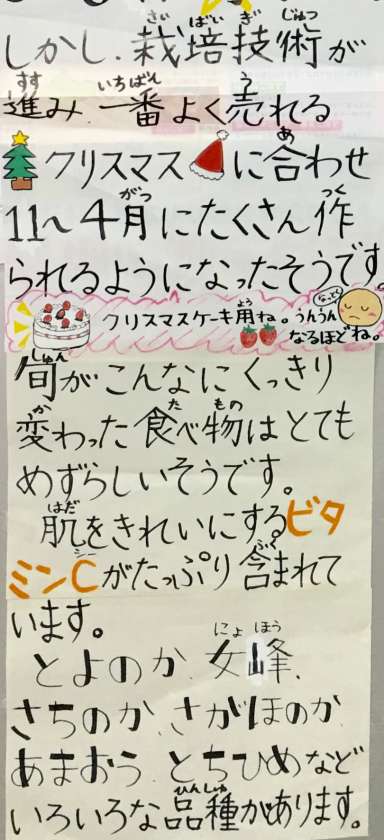 しかし、栽培技術が
進み、一番よく売れる
クリスマスに合わせ
11〜4月にたくさん作
られるようになったそうです。
クリスマスケーキ用ね。うんうん
なるほどね。
旬がこんなにくっきり
変わった食べ物はとても
めずらしいそうです。
肌をきれいにするビタ
ミンCがたっぷり含まれて
います。
とよのか、女峰、
さちのか、さがほのか、
あまおう、とちひめなど
いろいろな品種があります。